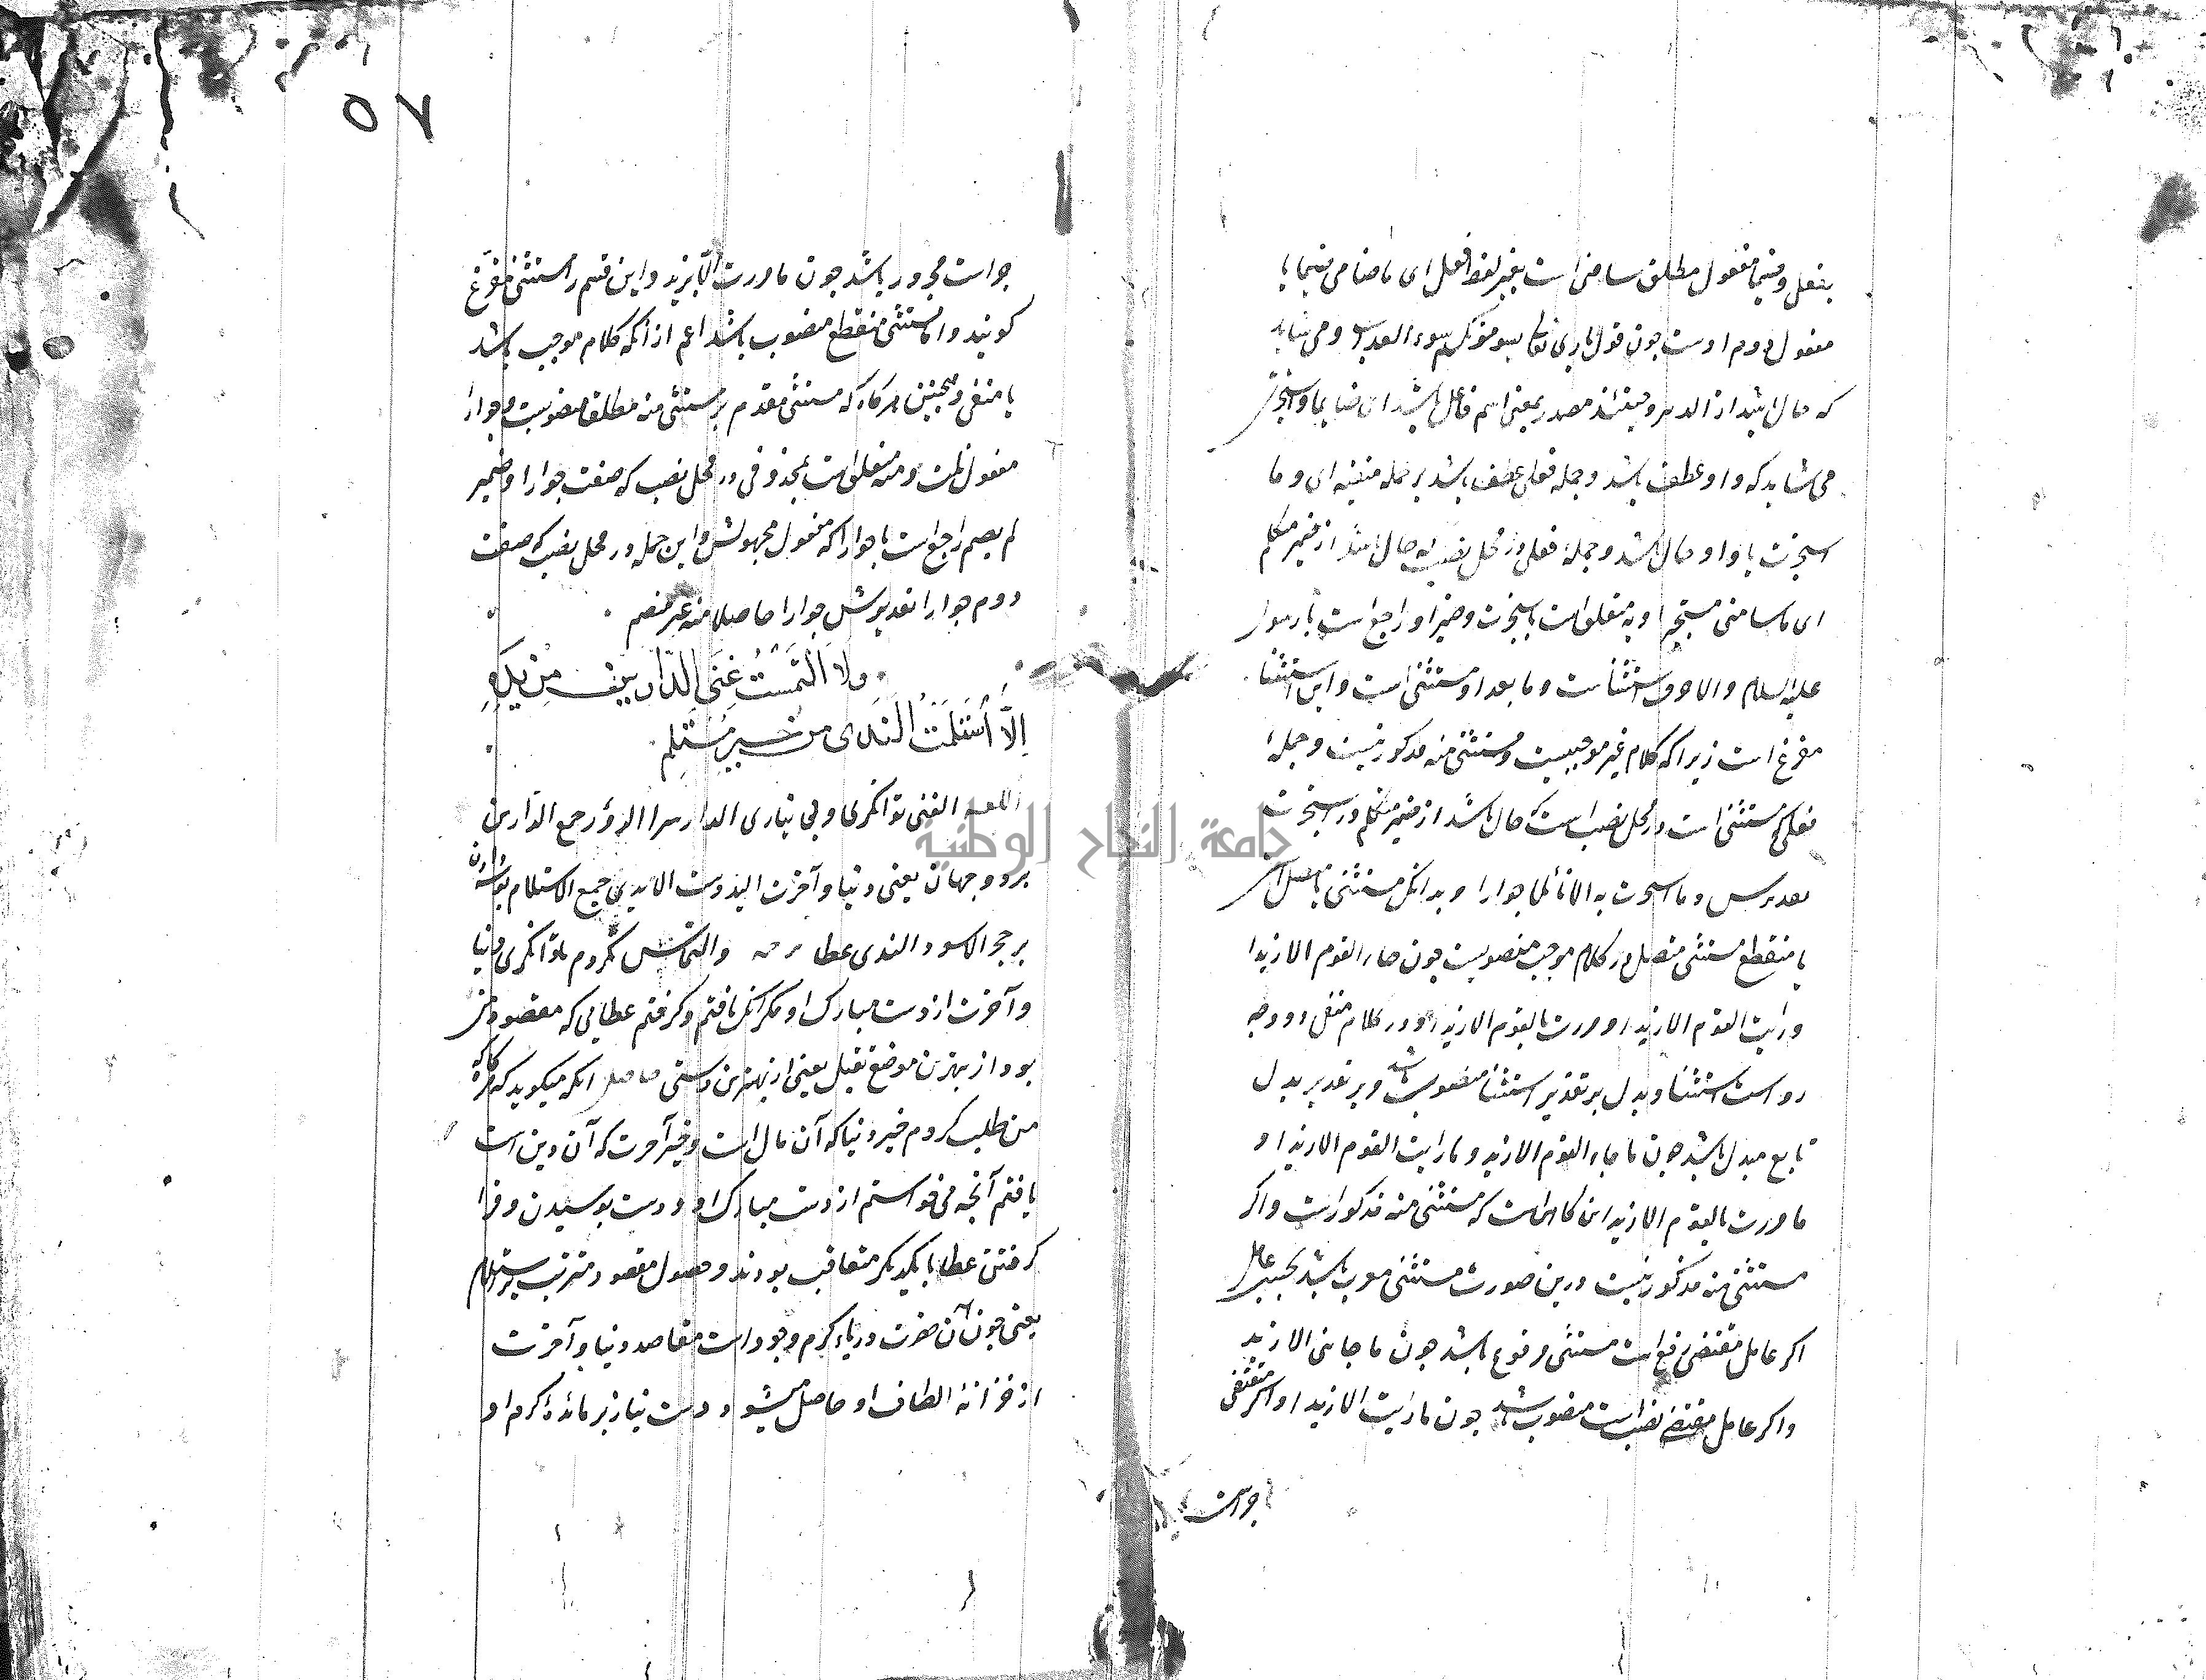 بفعل وضیما مفعول مطلق سامنی است بغیر لفظ فعل ای ما ضامنی ضیما یا
مفعول دوم اوست چون قول باری تعالی یسومونکم سوء العذاب و می شاید
که حال باشد از الدهر و حینئذ مصدر بمعنی اسم فاعل باشد ای ضایما و استجرت
می شاید که واو عطف باشد و جمله فعلی عطف باشد بر جمله منفیه ای و ما
استجرت یا واو حال باشد و جمله فعلی در محل نصب که حال باشد از ضمیر متکلم
ای ما سامنی مستجیرا و به متعلق است باستجرت و ضمیر او راجع است با رسول
علیه السلام و الا حرف استثنا است و ما بعد او مستثنی است و این استثنا
مفرغ است زیرا که کلام غیر موجبست و مستثنی منه مذکور نیست و جملهٔ
فعلی که مستثنی است در محل نصب است که حال باشد از ضمیر متکلم در استجرت
و ما استجرت به الا نائلا جوارا و بدانکه مستثنی یا متصل است
یا منقطع مستثنی متصل در کلام موجب منصوبست چون جاء القوم الا زیدا
و رایت القوم الا زیدا و مررت بالقوم الا زیدا و در کلام منفی دو وجه
رواست استثنا و بدل بر تقدیر استثنا منصوب باشد و بر تقدیر بدل
تابع مبدل باشد چون ما جاء القوم الا زید و ما رایت القوم الا زیدا و
ما مررت بالقوم الا زید این گاهی است که مستثنی منه مذکور است و اگر
مستثنی منه مذکور نیست درین صورت مستثنی معرب باشد بحسب عامل
اکر عامل مقتضی رفع است مستثنی مرفوع باشد چون ما جاءنی الا زید
و اکر عامل مقتضی نصب است منصوب باشد چون ما رایت الا زیدا و اکر مقتضی
جر است
۵۷
جر است مجرور باشد چون ما مررت الا بزید و این قسم را مستثنی مفرغ
کویند و اما مستثنی منقطع منصوب باشد اعم از آنکه کلام موجب باشد
یا منفی و همچنین هرگاه که مستثنی مقدم بر مستثنی منه مطلقا منصوبست و جوارا
مفعول نلت و منه متعلق است بمحذوفی در محل نصب که صفت جوارا و ضمیر
لم یضم راجع است با جوارا که مفعول مجهولش و این جمله در محل نصب که صفت
دوم جوارا تقدیرش جوارا حاصلا منه غیر منضم
ولا التمست غنی الدارین من یده
الا استلمت الندی من خیر مستلم
اللغة الغنی توانکری و بی نیازی الدار سرا الدؤر جمع الدارین
هر دو جهان یعنی دنیا و آخرت الید دست الایدی جمع الاستلام بوسه دادن
بر حجر الاسود الندی عطا و التماس نکردم توانکری دنیا
و آخرت از دست مبارک او مکر آنکه یافتم و کرفتم عطایی که مقصود من
بود از بهترین موضع تقبیل یعنی از بهترین دستی حاصل آنکه میکوید که هرگاه که
من طلب کردم خیر دنیا که آن مال است و خیر آخرت که آن دین است
یافتم آنچه می خواستم از دست مبارک او و دست بوسیدن و فرا
کرفتن عطا با یکدیکر متعاقب بودند و حصول مقصود مترتب بر استلام
یعنی چون آن حضرت دریاء کرم وجود است مقاصد دنیا و آخرت
از خزانهٔ الطاف او حاصل میشود و دست نیاز بر مائدهٔ اکرم او
جامعة النجاح الوطنية